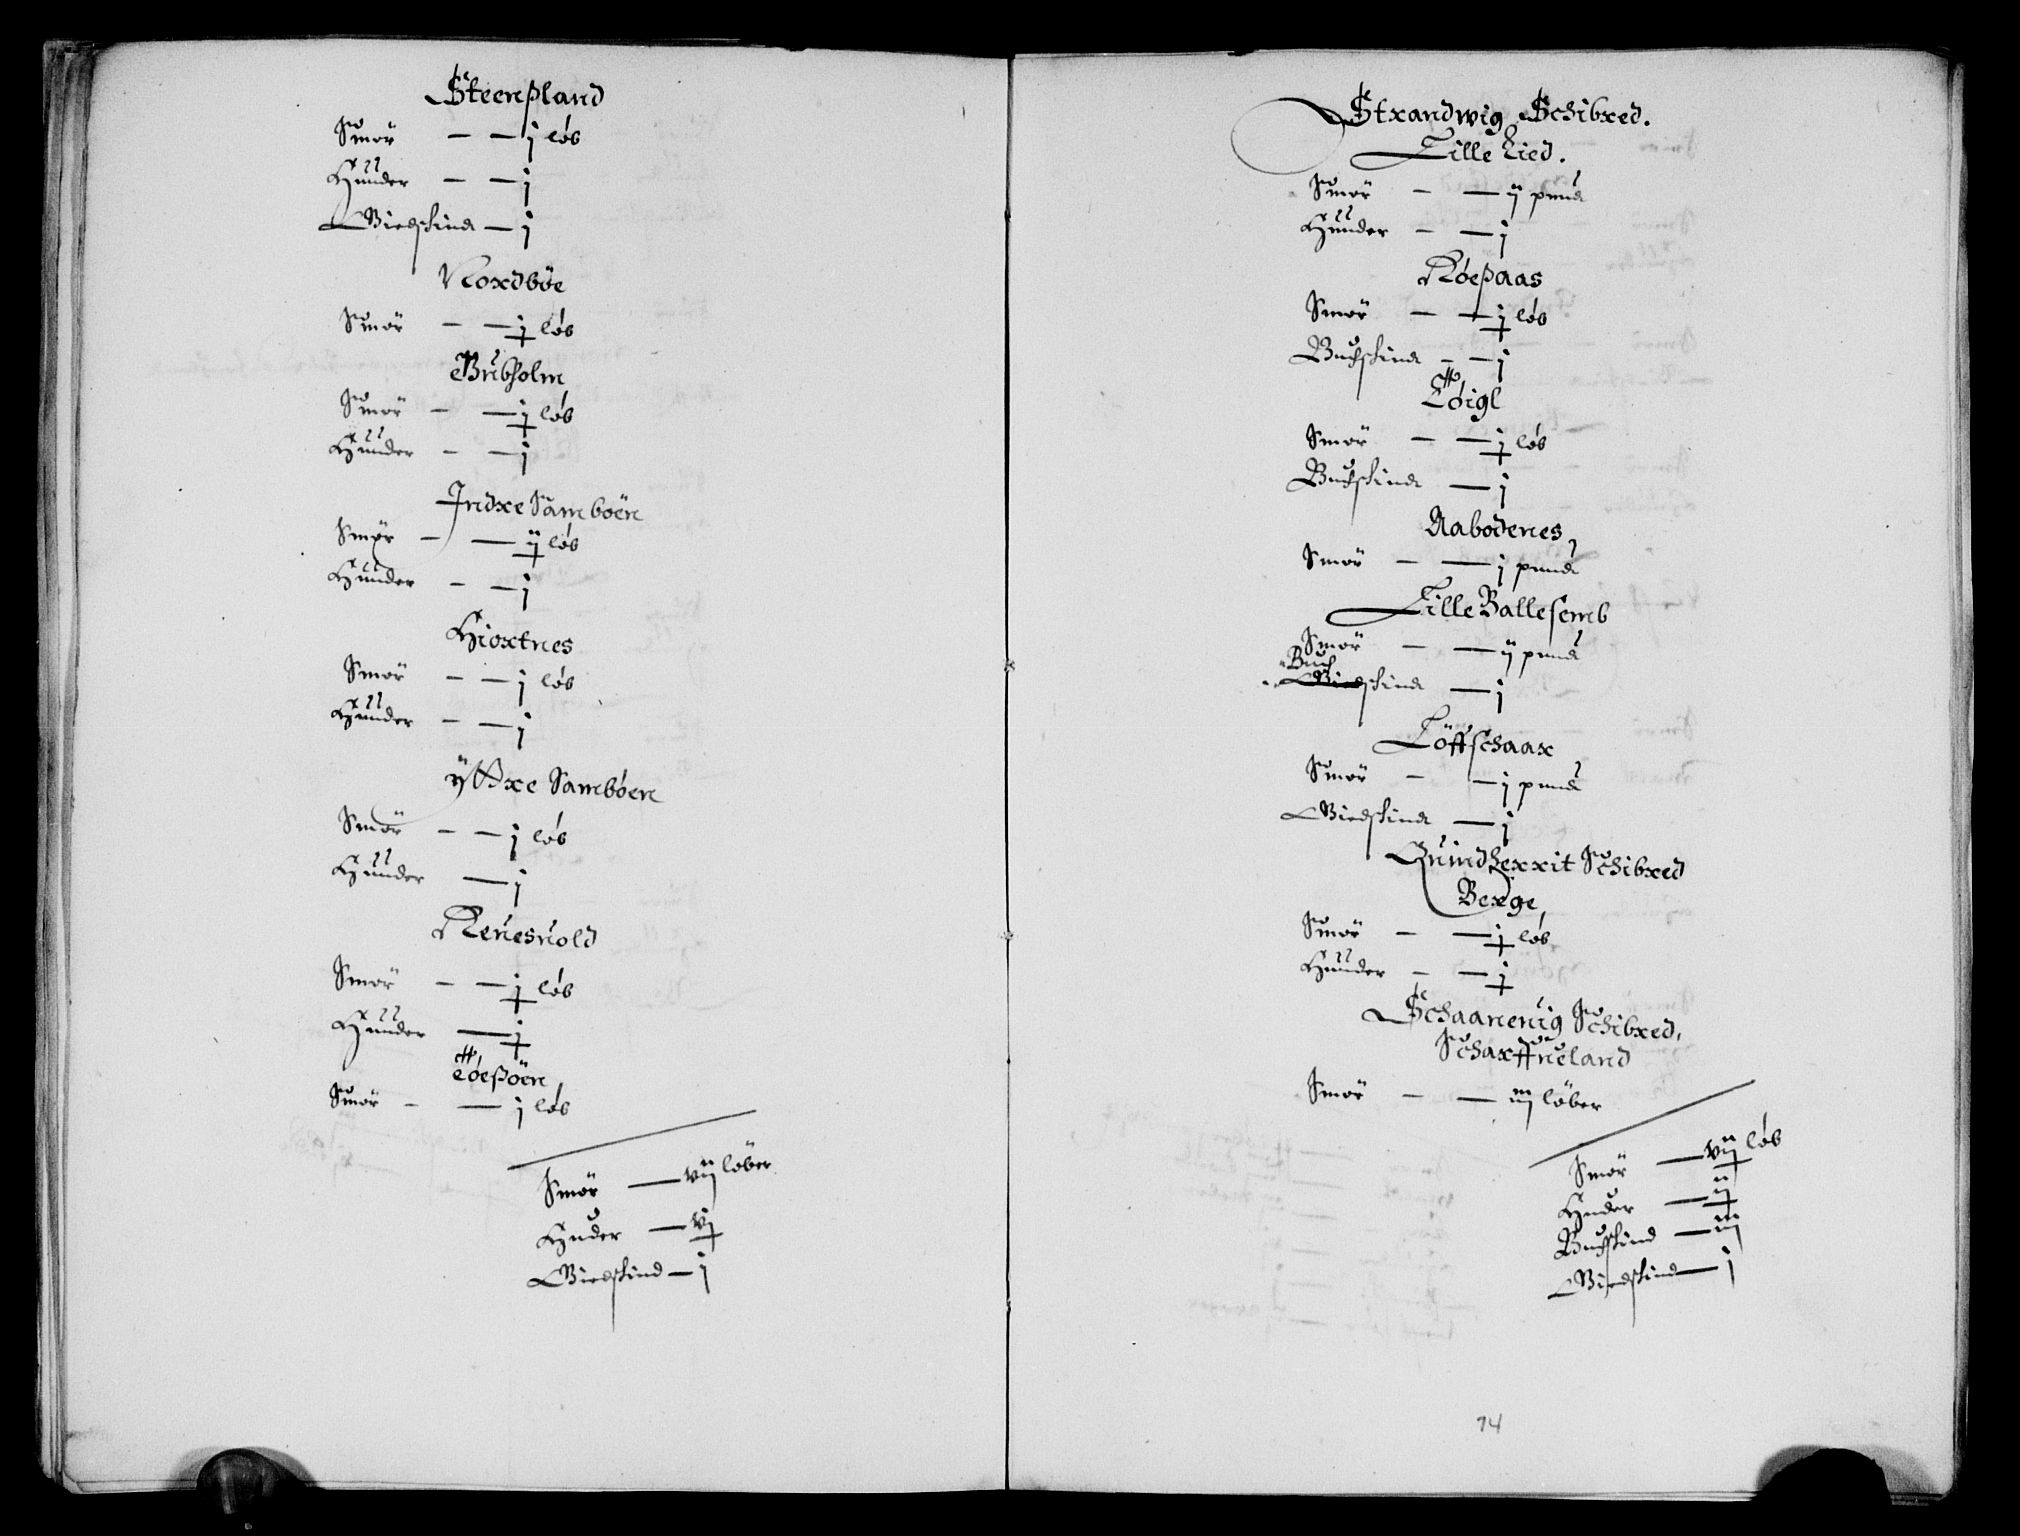 Steenßland
Smör – – j løb
Huuder – – j
Giedskind – j
Nordbøe
Smör – – j løb
Bubholm
Smör – – j løb
Huuder – – j
Indre Sambøen
Smör – – ij løb
Huuder – – j
Hiortnes
Smör – – j løb
Huuder – – j
Ytre Sambøen
Smör – – j løb
Huuder – j
Reuesuold
Smör – – j løb
Huuder – j
Løeßøen
Smör – – j løb
Smör – vij løber
Huder – vj
Giedskind – j
Strandwig Schibred.
Lille Lied.
Smör – – ij pund
Huuder – – j
Røeßaas
Smör – – j løb
Buchskind – – j
Løigl
Smör – – j løb
Buchskind – j
Aabodenes
Smör – – j pund
Lille Ballesemb
Smör – – ij pund
Buch
Giedskind – j
Löffschaar
Smör – – j pund
Giedskind – j
Quindherrit Schibred
Berge
Smör – – j løb
Huuder – – j
Schaaneuig Schibred,
Scharffueland
Smör – – iij løber
Smör – vij løb
Huder – ij
Buchskind – iij
Giedskind – j
74